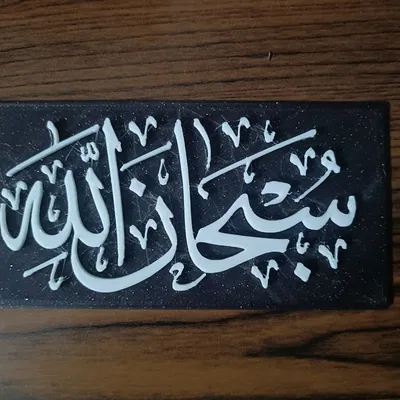 سُبْحَانَ اللّٰه